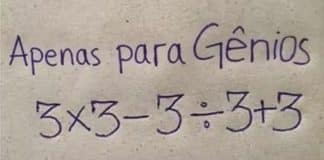 Apenas para Gênios
3×3-3÷3+3